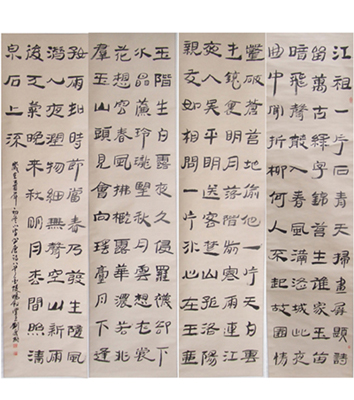 江祖一片石青天掃畫屏題詩
留萬古綠字錦苔生誰家玉笛
暗飛聲散入春風滿洛城此夜
曲中聞折柳何人不起故園情
鑿破蒼苔地偷他一片天白雲
生鏡裏明月落階前寒雨連江
夜入吳平明送客楚山孤洛陽
親友如相問一片冰心在玉壺
玉階生白露夜久侵羅襪卻下
水晶簾玲瓏望秋月雲想衣裳
花想容春風拂檻露華濃若非
群玉山頭見會向瑤臺月下逢
好雨知時節當春乃發生隨風
潛入夜潤物細無聲空山新雨
後天氣晚來秋明月松間照清
泉石上流